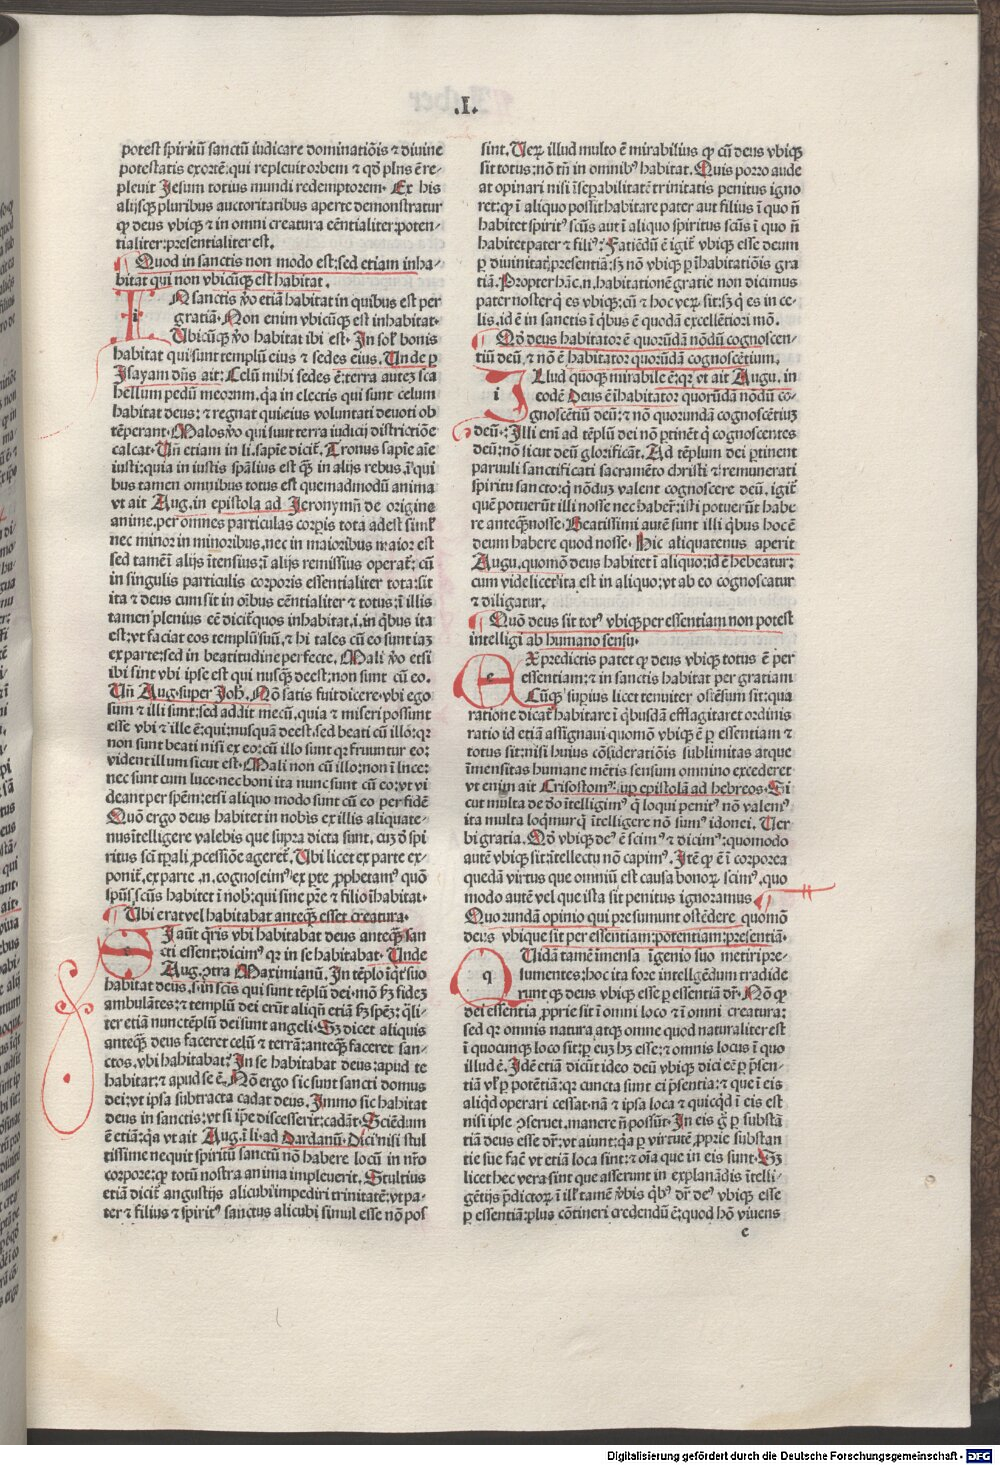 .I.
potest spiritū sanctū iudicare dominatiōis ⁊ diuine
potestatis exortē. qui repleuit orbem ⁊ qđ plus ē re-
pleuit Jesum totius mundi redemptorem. Ex his
alijsqꝫ pluribus auctoritatibus aperte demonstratur
ꝙ deus vbiqꝫ ⁊ in omni creatura eēntialiter: poten-
tialiter: presentialiter est.
Quod in sanctis non modo est: sed etiam inha-
bitat qui non vbicūqꝫ est habitat.
iN sanctis ꝟo etiā habitat in quibus est per
gratiā. Non enim vbicūqꝫ est inhabitat.
Vbicūqꝫ ꝟo habitat ibi est. In sol' bonis
habitat qui sunt templū eius ⁊ sedes eius. Unde ꝑ
Isayam dn̄s ait: Celū mihi sedes ē: terra autez sca
bellum pedū meorum. q̇a in electis qui sunt celum
habitat deus: ⁊ regnat qui eius voluntati deuoti ob
tēperant. Malos ꝟo qui sunt terra iudicij districtiōe
calcat. Un̄ etiam in li. sapie dicit᷑. Tronus sapie aīe
iusti: quia in iustis sp̄alius est qꝫ̄ in alijs rebus. ī qui
bus tamen omnibus totus est quemadmodū anima
vt ait Aug. in epistola ad Jeronymū de origine
anime. per omnes particulas corpis tota adest simł
nec minor in minoribus. nec in maioribus maior est
sed tamē ī alijs ītensius: ī alijs remissius operat᷑: cū
in singulis particulis corporis essentialiter tota: sit
ita ⁊ deus cum sit in oībus eēntialiter ⁊ totus: ī illis
tamen plenius eē dicit᷑ quos inhabitat. i. in q̇bus ita
est: vt faciat eos templū suū. ⁊ hi tales cū eo sunt iaꝫ
ex parte: sed in beatitudine perfecte. Mali ꝟo etsi
ibi sint vbi ipse est qui nusqꝫ̄ deest: non sunt cū eo.
Un̄ Aug. super Joh. Nō satis fuit dicere. vbi ego
sum ⁊ illi sunt: sed addit mecū. quia ⁊ miseri possunt
esse vbi ⁊ ille ē: qui nusquā deest. sed beati cū illo: qꝛ
non sunt beati nisi ex eo: cū illo sunt qꝛ fruuntur eo:
vident illum sicut est. Mali non cū illo: non ī luce:
nec sunt cum luce. nec boni ita nunc sunt cū eo: vt vi
deant per spēm: etsi aliquo modo sunt cū eo per fidē
Quō ergo deus habitet in nobis ex illis aliquate-
nus ītelligere valebis que supra dicta sunt. cuꝫ đ spi
ritus sci tp̄ali ꝓcessiōe ageret᷑. Vbi licet ex parte ex-
ponit᷑. ex parte .n. cognoscimꝰ ⁊ ex ꝑte ꝓphetamꝰ quō
spūs scūs habitet ī nob᷑: qui sine pr̄e ⁊ filio īhabitat.
Vbi erat vel habitabat anteqꝫ esset creatura.
sI aūt q̄ris vbi habitabat deus anteqꝫ san
cti essent: dicimꝰ qꝛ in se habitabat. Unde
Aug. ꝯtra Maximianū. In tēplo iq̇t suo
habitat deus. s. in scīs qui sunt tēplū dei. mō ẜꝫ fideꝫ
ambulātes: ⁊ templū dei erūt aliqn̄ etiā ẜꝫ spēꝫ: q̄li-
ter etiā nunc tēplū dei sunt angeli. Sꝫ dicet aliquis
anteqꝫ deus faceret celū ⁊ terrā: anteqꝫ faceret san-
ctos. vbi habitabat: In se habitabat deus: apud te
habitat: ⁊ apud se ē. Nō ergo sic sunt sancti domus
dei: vt ipsa subtracta cadat deus. Immo sic habitat
deus in sanctis: vt si ip̄e discesserit: cadāt. Sciēdum
ē etiā: q̇a vt ait Aug. ī li. ad Dardanū. Dici nisi stul
tissime nequit spiritū sanctū nō habere locū in nr̄o
corpore: ꝙ totū nostra anima impleuerit. Stultius
etiā dicit᷑ angustijs alicubi impediri trinitatē: vt pa-
ter ⁊ filius ⁊ spiritꝰ sanctus alicubi simul esse nō pos
sint. Veꝝ illud multo ē mirabilius ꝙ cū deus vbiqꝫ
sit totus: nō tn̄ in omnibꝰ habitat. Quis porro aude
at opinari nisi īsepabilitatē trinitatis penitus igno
ret: ꝙ ī aliquo possit habitare pater aut filius ī quo n̄
habitet spiritꝰ scūs aut ī aliquo spiritus scūs ī quo n̄
habitet pater ⁊ filiꝰ: Fatiēdū ē igit᷑ vbiqꝫ esse deum
ꝑ diuinitat᷑ presentiā: sꝫ nō vbiqꝫ ꝑ īhabitatiōis gra
tiā. Propter hāc .n. habitationē gratie non dicimus
pater noster q̇ es vbiqꝫ: cū ⁊ hoc veꝝ sit: sꝫ q̇ es in ce-
lis. id ē in sanctis ī q̇bus ē quodā excellētiori mō.
Qđ deus habitator ē quorūdā nōdū cognoscen-
tiū deū. ⁊ nō ē habitator quorūdā cognoscētium.
iLlud quoqꝫ mirabile ē: qꝛ vt ait Augu. in
eodē Deus ē īhabitator quorūdā nōdū co-
gnoscētiū deū: ⁊ nō quorundā cognoscētiuꝫ
deū. Illi enī ad tēplū dei nō ꝑtinēt q̇ cognoscentes
deū: nō sicut deū glorificāt. Ad tēplum dei ꝑtinent
paruuli sanctificati sacramēto christi ⁊ remunerati
spiritu sancto: q̇ nōduꝫ valent cognoscere deū. igit᷑
quē potuerūt illi nosse nec haber᷑: isti potuerūt habe
re anteqꝫ nosse. Beatissimi autē sunt illi q̇bus hoc ē
deum habere quod nosse. Hic aliquatenus aperit
Augu. quomō deus habitet ī aliquo: id ē hēbeatur:
cum videlicet ita est in aliquo: vt ab eo cognoscatur
⁊ diligatur.
Quō deus sit totꝰ vbiqꝫ per essentiam non potest
intelligi ab humano sensu.
eX predictis patet ꝙ deus vbiqꝫ totus ē per
essentiam: ⁊ in sanctis habitat per gratiam
Cūqꝫ supius licet tenuiter ostēsum sit: qua
ratione dicat᷑ habitare ī q̇busdā efflagitaret ordinis
ratio id etiā assignaui quomō vbiqꝫ ē ꝑ essentiam ⁊
totus sit: nisi huius cōsideratiōis sublimitas atqꝫ
īmensitas humane mētis sensum omnino excederet
vt enim ait Crisostomꝰ sup epistolā ad hebreos. Si
cut multa de đo ītelligimꝰ q̇ loqui penitꝰ nō valemꝰ
ita multa loq̇mur q̇ ītelligere nō sumꝰ idonei. Ver
bi gratia. Qđ vbiqꝫ deꝰ ē scimꝰ ⁊ dicimꝰ: quomodo
autē vbiqꝫ sit: ītellectu nō capimꝰ. Itē ꝙ ē ī corporea
quedā virtus que omniū est causa bonoꝝ scimꝰ. quo
modo autē vel que ista sit penitus ignoramus.
Quorundā opinio qui presumunt ostēdere quomō
deus vbique sit per essentiam: potentiam: presentiā.
qUidā tamē imensa īgenio suo metiri pre-
sumentes: hoc ita fore intelligēdum tradide
runt qꝫ deus vbiqꝫ esse ꝑ essentiā dr̄. Nō ꝙ
dei essentia ꝓprie sit ī omni loco ⁊ ī omni creatura:
sed qꝛ omnis natura atqꝫ omne quod naturaliter est
ī quocunqꝫ loco sit: ꝑ euꝫ hꝫ esse: ⁊ omnis locus ī quo
illud ē. Idē etiā dicūt ideo deū vbiqꝫ dici eē ꝑ p̄sen-
tiā vl' ꝑ potētiā: qꝛ cuncta sunt ei p̄sentia: ⁊ que ī eis
aliq̇d operari cessat. nā ⁊ ipsa loca ⁊ quicq̇d ī eis est
nisi ipse ꝯseruet. manere n̄ possūt. In eis g̊ ꝑ substā
tiā deus esse dr̄: vt aiunt: q̇a ꝑ virtutē ꝓprie substan
tie sue facē vt etiā loca sint: ⁊ oīa que in eis sunt. Sꝫ
licet hec vera sint que asserunt in explanādis ītelli-
gētijs p̄dictoꝝ ī ill' tamē ꝟbis q̇bꝰ dr̄ deꝰ vbiqꝫ esse
ꝑ essentiā: plus cōtineri credendū ē: quod hō viuens
c
Digitalisierung gefördert durch die Deutsche Forschungsgemeinschaft - DFG